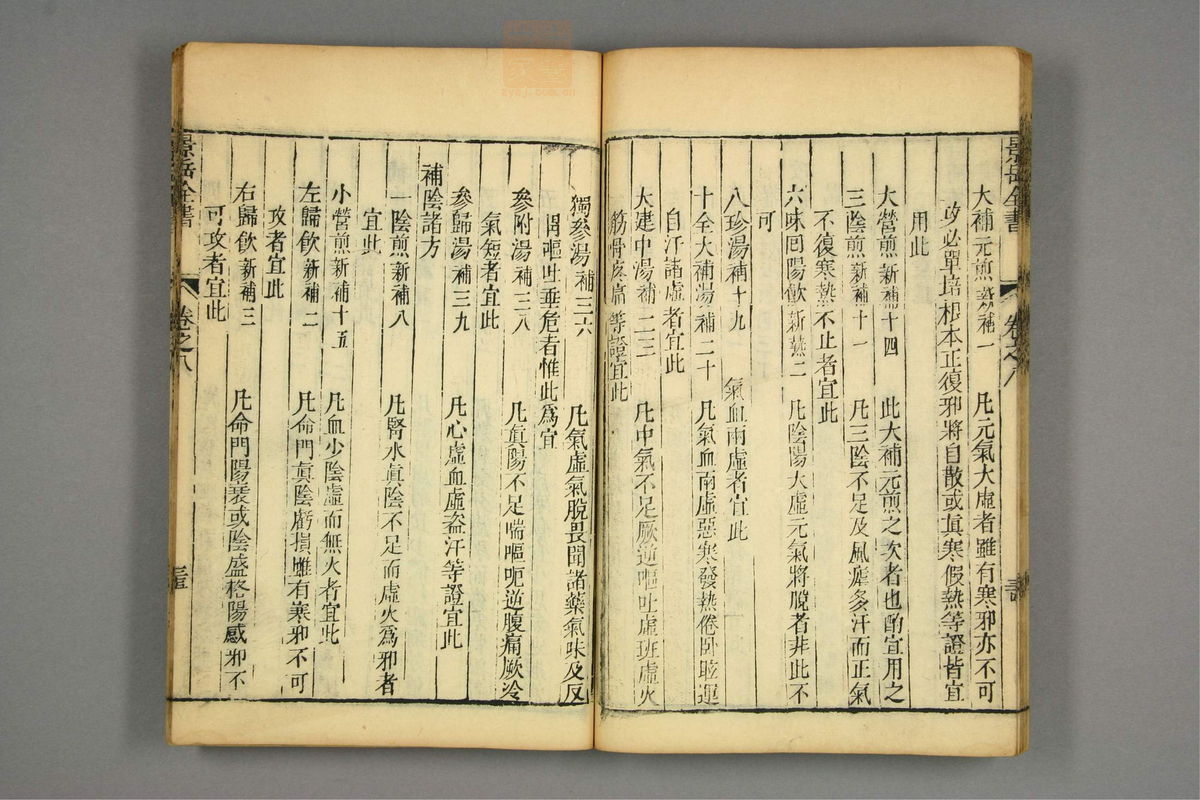 景岳全書 卷之八
大補元煎 新補一 凡元氣大虛者雖有寒邪亦不可
攻必單培根本正復邪將自散或真寒假熱等證皆宜
用此
大營煎 新補十四 此大補元煎之次者也酌宜用之
三陰煎 新補十一 凡三陰不足及風瘧多汗而正氣
不復寒熱不止者宜此
六味回陽飲 新熱二 凡陰陽大虛元氣將脫者非此不
可
八珍湯 補十九 氣血兩虛者宜此
十全大補湯 補二十 凡氣血兩虛惡寒發熱倦卧眩運
自汗諸虛者宜此
大建中湯 補二三 凡中氣不足厥逆嘔吐虛班虛火
筋骨疼痛等證宜此
獨參湯 補三六 凡氣虛氣脫畏聞諸藥氣味及反
胃嘔吐垂危者惟此為宜
參附湯 補三八 凡真陽不足喘嘔呃逆腹痛厥冷
氣短者宜此
參歸湯 補三九 凡心虛血虛盜汗等證宜此
補陰諸方
一陰煎 新補八 凡腎水真陰不足而虛火為邪者
宜此
小營煎 新補十五 凡血少陰虛而無火者宜此
左歸飲 新補二 凡命門真陰虧損雖有寒邪不可
攻者宜此
右歸飲 新補三 凡命門陽衰或陰盛格陽感邪不
可攻者宜此
景岳全書 卷之八